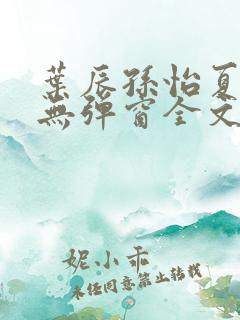 葉辰孫怡夏
無彈窗全文
妮小乖
未經同意禁止轉載